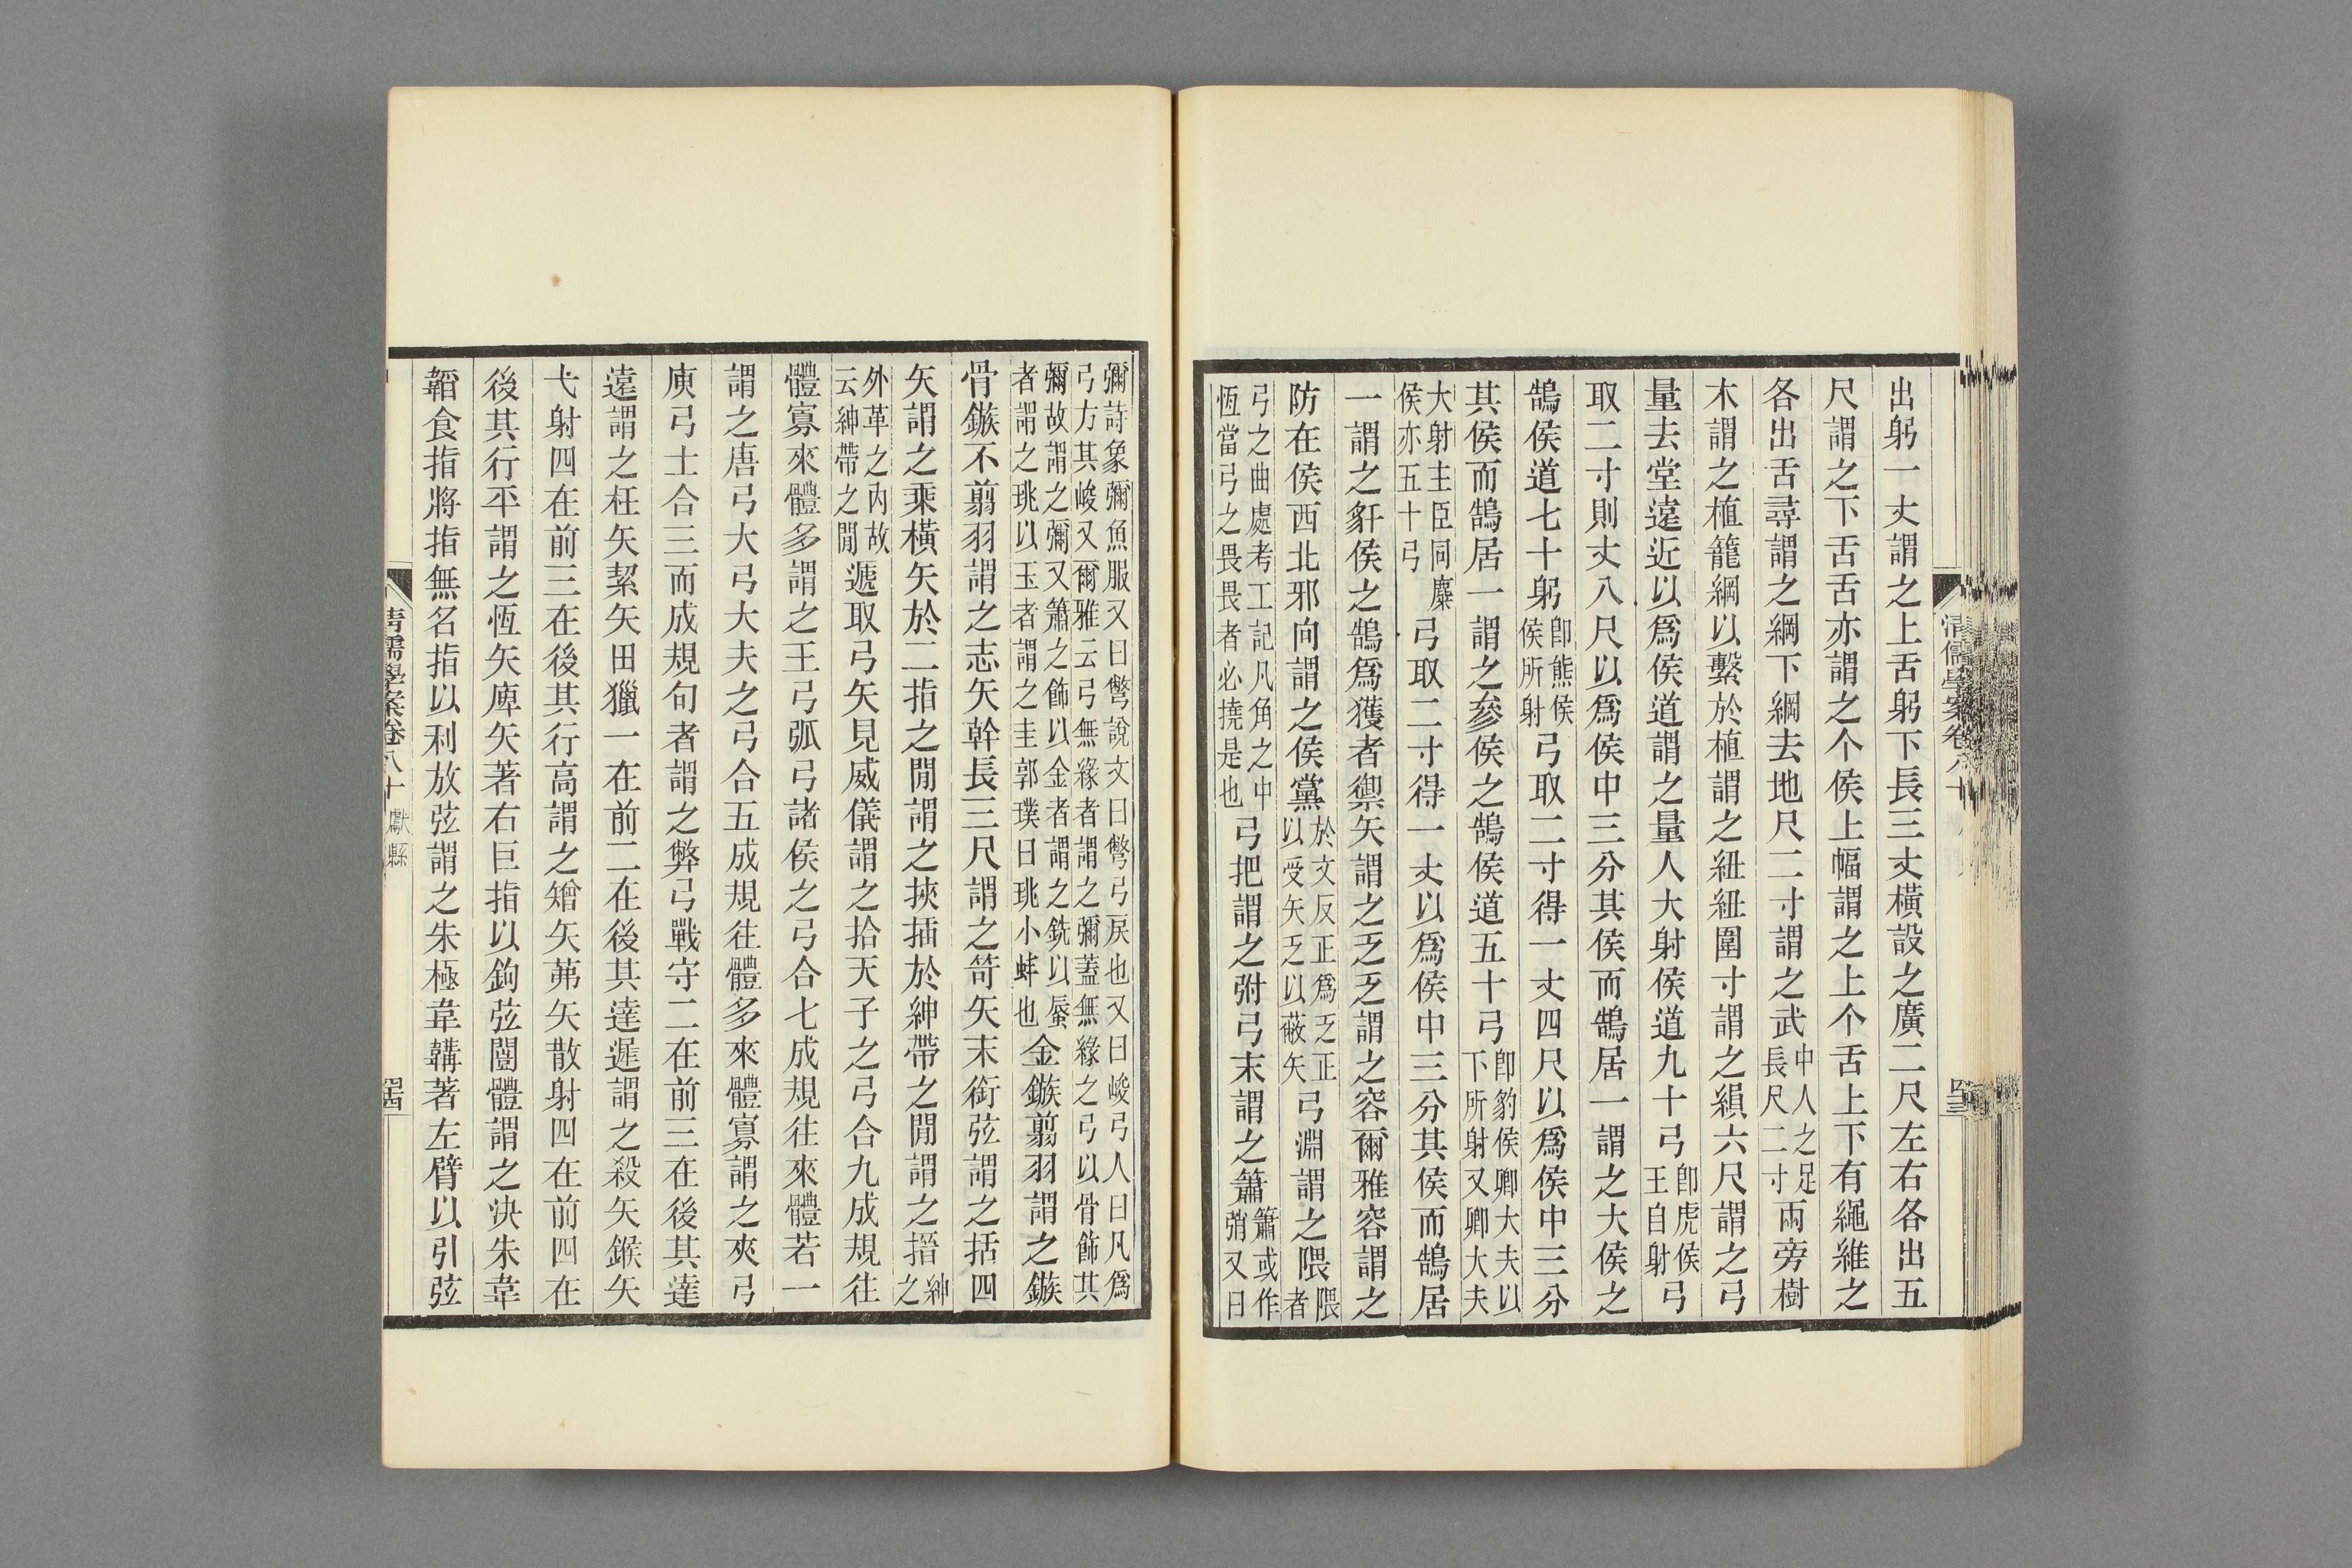 清儒學案卷八十
出躬一丈謂之上舌躬下長三丈橫設之廣二尺左右各出五
尺謂之下舌舌亦謂之个侯上幅謂之上个舌上下有繩維之
各出舌尋謂之綱下綱去地尺二寸謂之武中人之足長尺二寸兩旁樹
木謂之植籠綱以繫於植謂之紐紐圍寸謂之縜六尺謂之弓
量去堂遠近以爲侯道謂之量人大射侯道九十弓卽虎侯王自射弓
取二寸則丈八尺以爲侯中三分其侯而鵠居一謂之大侯之
鵠侯道七十躬卽熊侯侯所射弓取二寸得一丈四尺以爲侯中三分
其侯而鵠居一謂之參侯之鵠侯道五十弓卽豹侯卿大夫以下所射又卿大夫
大射主臣同麋侯亦五十弓弓取二寸得一丈以爲侯中三分其侯而鵠居
一謂之豻侯之鵠爲獲者禦矢謂之乏乏謂之容爾雅容謂之
防在侯西北邪向謂之侯黨於文反正爲乏正以受矢乏以蔽矢弓淵謂之隈隈者
弓之曲處考工記凡角之中恆當弓之畏畏者必撓是也弓把謂之弣弓末謂之簫簫或作弰又曰
彌詩象彌魚服又曰彆說文曰彆弓戾也又曰峻弓人曰凡爲弓方其峻又爾雅云弓無緣者謂之彌蓋無緣之弓以骨飾其
彌故謂之彌又簫之飾以金者謂之銑以蜃者謂之珧以玉者謂之圭郭璞曰珧小蚌也金鏃翦羽謂之鏃
骨鏃不翦羽謂之志矢幹長三尺謂之笴矢末銜弦謂之括四
矢謂之乘橫矢於二指之閒謂之挾插於紳帶之閒謂之搢紳之
外革之內故云紳帶之閒遞取弓矢見威儀謂之拾天子之弓合九成規往
體寡來體多謂之王弓弧弓諸侯之弓合七成規往來體若一
謂之唐弓大弓大夫之弓合五成規往體多來體寡謂之夾弓
庾弓士合三而成規句者謂之弊弓戰守二在前三在後其達
遠謂之枉矢絜矢田獵一在前二在後其達遲謂之殺矢鍭矢
弋射四在前三在後其行高謂之矰矢茀矢散射四在前四在
後其行平謂之恆矢庳矢著右巨指以鉤弦闓體謂之決朱韋
韜食指將指無名指以利放弦謂之朱極韋韝著左臂以引弦
清儒學案卷八十 獻縣